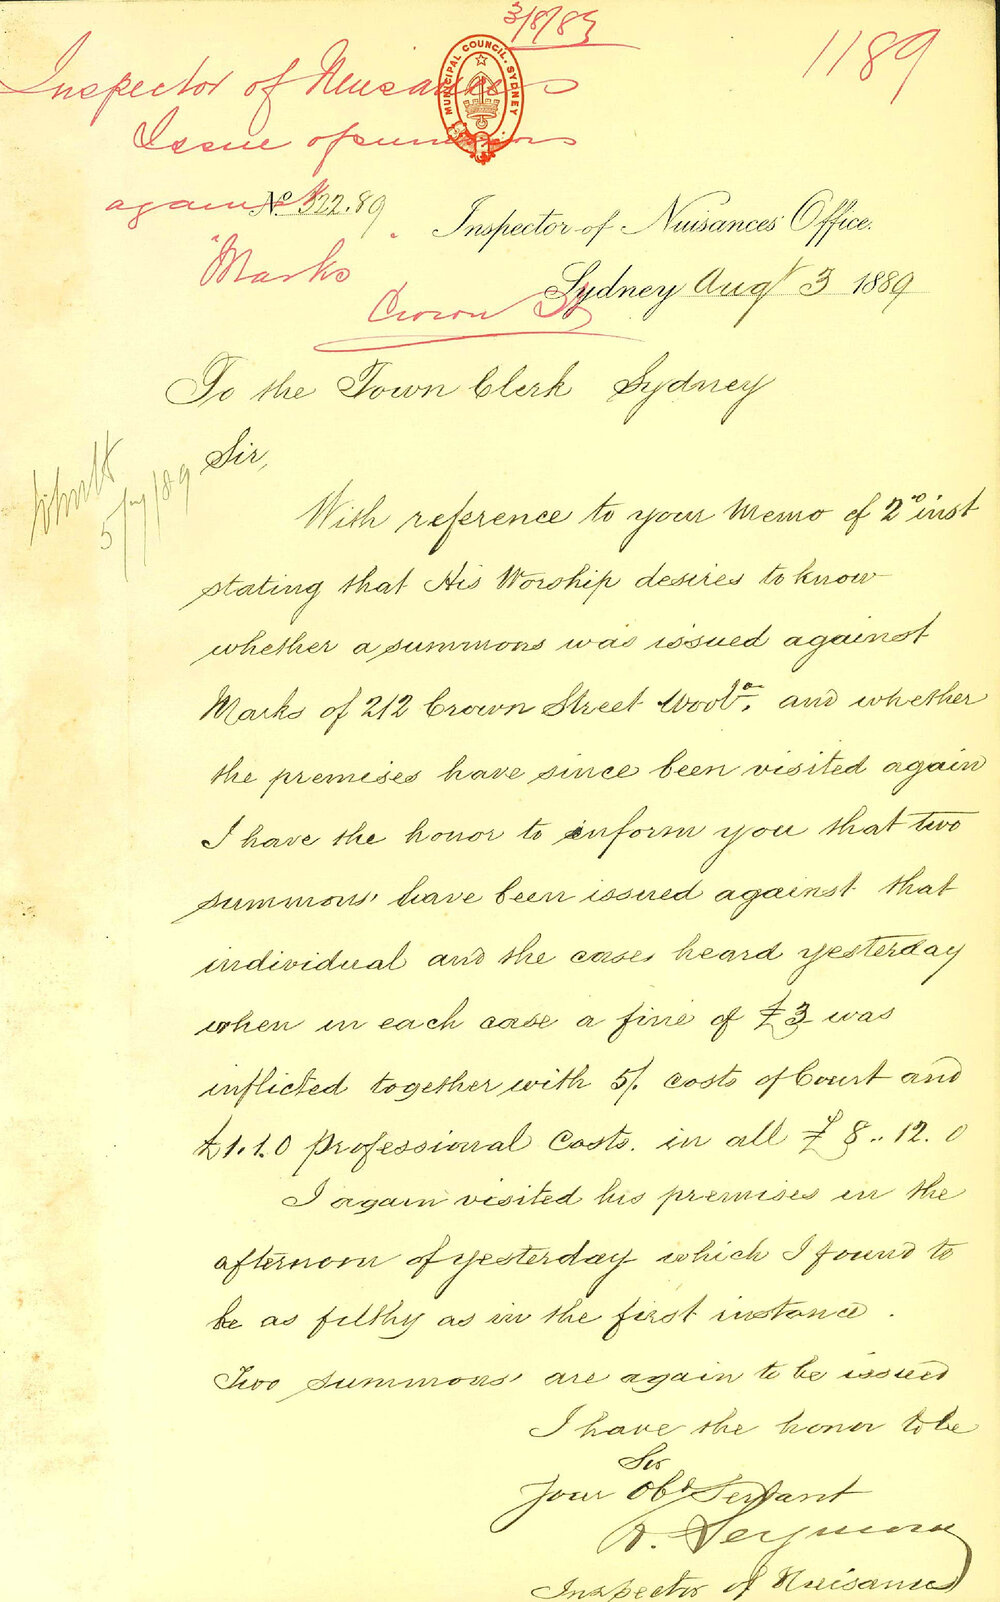 3/8/89
1189
MUNICIPAL COUNCIL. SYDNEY
Inspector of Nuisances
Issue of summons
against
"Marks"
Crown St
No 322.89
Inspector of Nuisances Office.
Sydney Augt 3 1889
To the Town Clerk Sydney
Sir,
5/ /89
With reference to your Memo of 2nd inst
stating that His Worship desires to know
whether a summons was issued against
Marks of 212 Crown Street Wool'a. and whether
the premises have since been visited again
I have the honor to inform you that two
summons' have been issued against that
individual and the cases heard yesterday
when in each case a fine of £3 was
inflicted together with 5/. costs of Court and
£1.1.0 professional Costs. in all £8..12.0
I again visited his premises in the
afternoon of yesterday which I found to
be as filthy as in the first instance.
Two summons' are again to be issued
I have the honor to be
Sir
Your Obt Servant
R. Seymour
Inspector of Nuisances